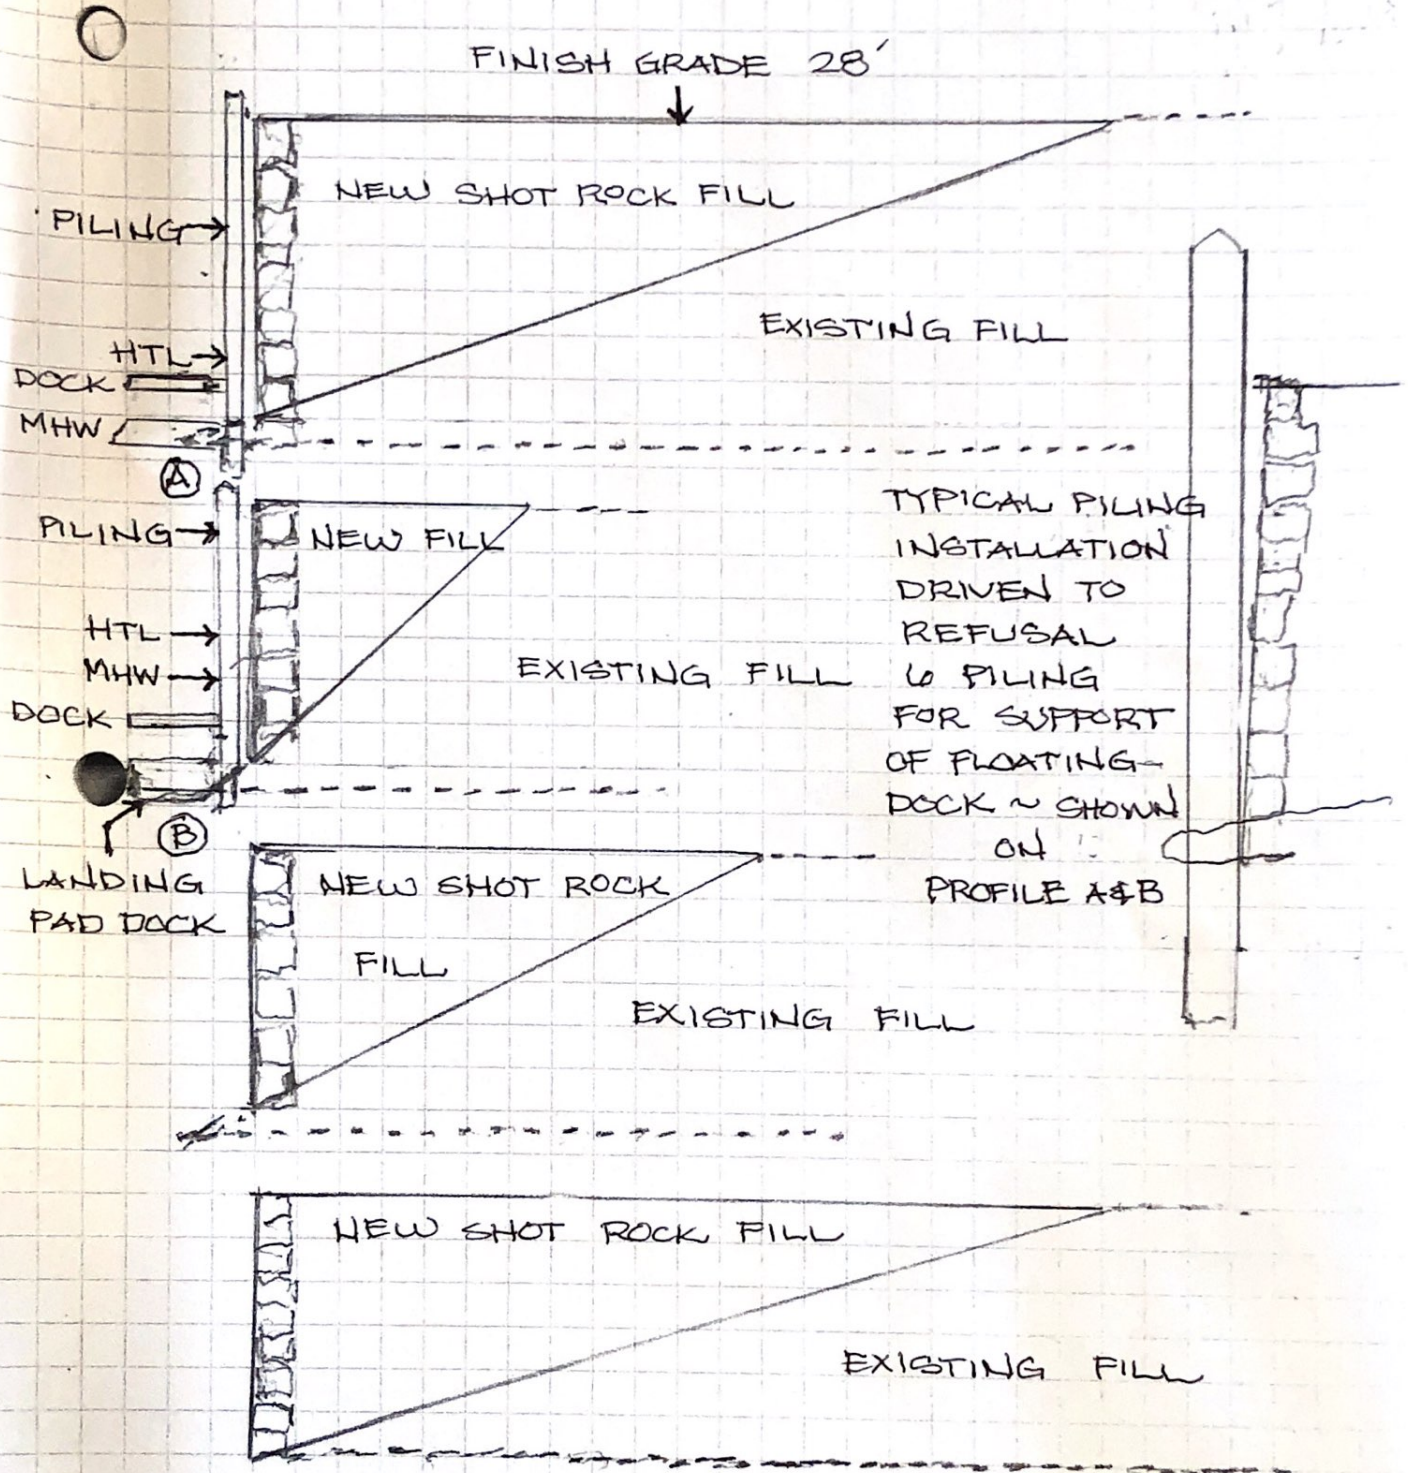 FINISH GRADE 28'
NEW SHOT ROCK FILL
PILING
EXISTING FILL
HTL
DOCK
MHW
A
PILING
NEW FILL
HTL
MHW
EXISTING FILL
DOCK
B
LANDING
PAD DOCK
TYPICAL PILING
INSTALLATION
DRIVEN TO
REFUSAL
6 PILING
FOR SUPPORT
OF FLOATING
DOCK ~ SHOWN
ON
PROFILE A&B
NEW SHOT ROCK
FILL
EXISTING FILL
NEW SHOT ROCK FILL
EXISTING FILL